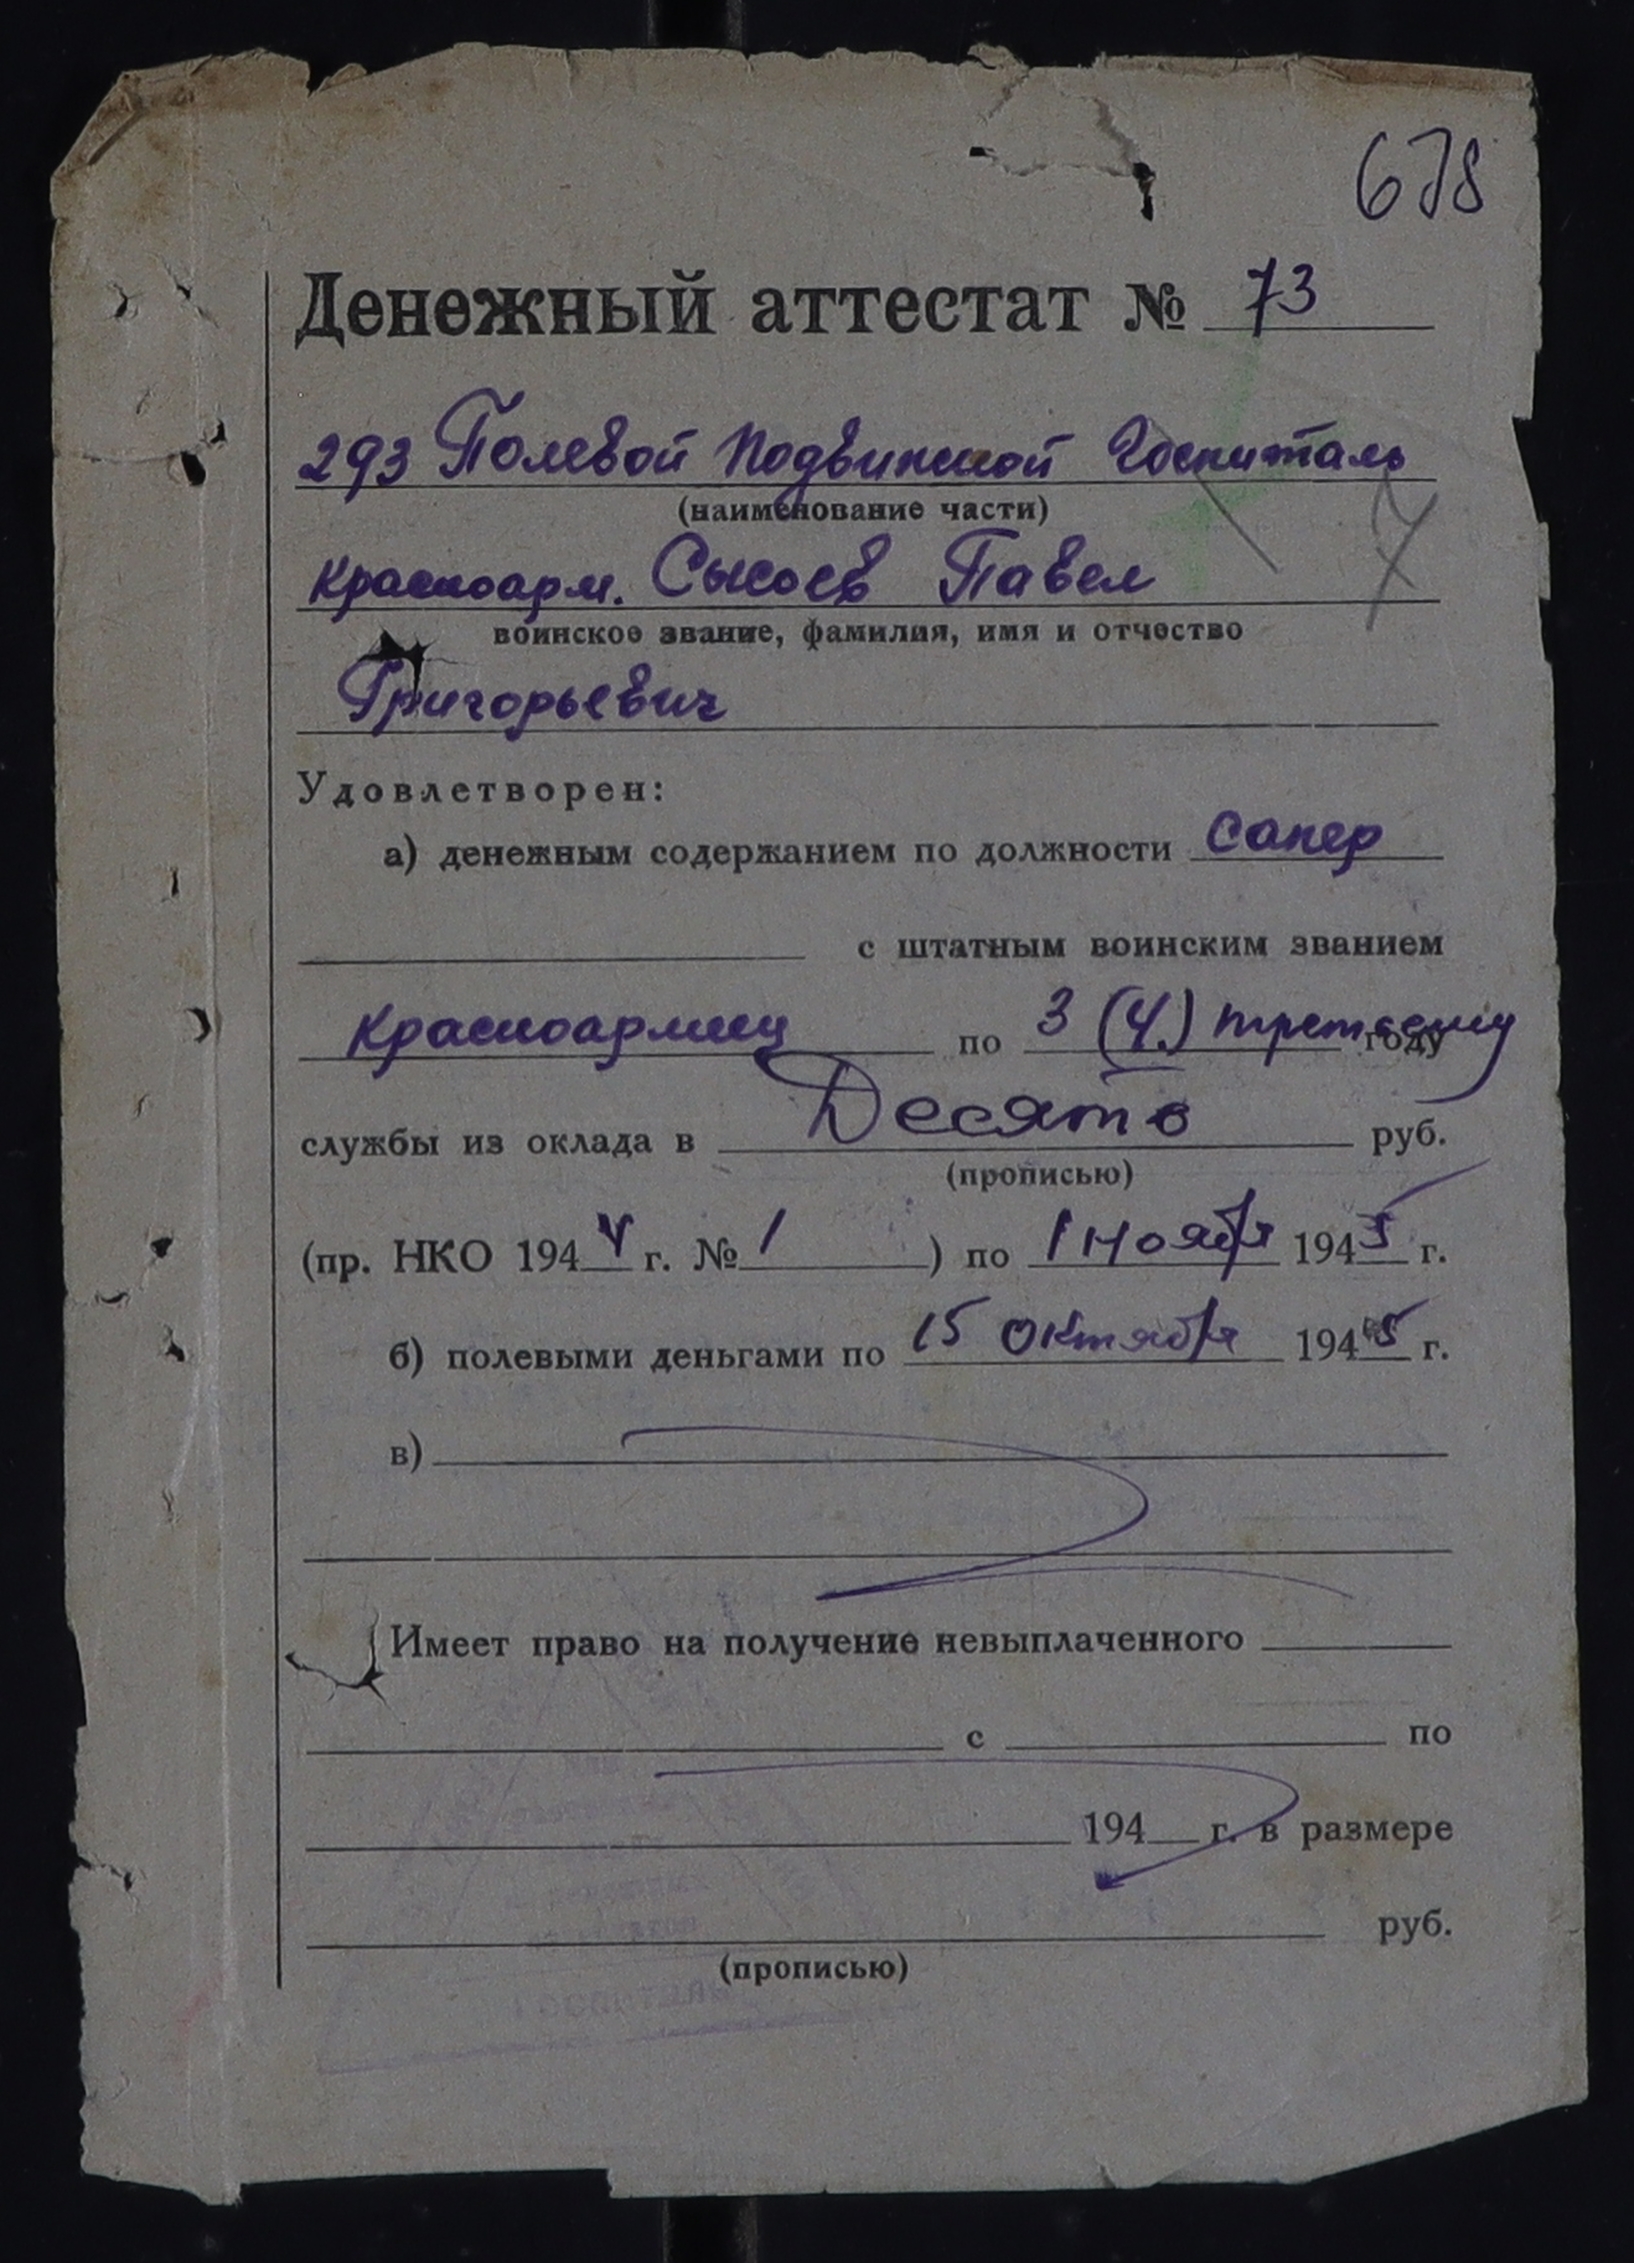 678
Денежный аттестат № 73
293 Полевой Подвижной Госпиталь
(наименование части)
Красноарм. Сысоев Павел
воинское звание, фамилия, имя и отчество
Григорьевич
Удовлетворен:
а) денежным содержанием по должности сапер
с штатным воинским званием
красноармеец по 3 (Ч.) третьему году
службы из оклада в Десять руб.
(прописью)
(пр. НКО 194 4 г. № 1 ) по 1 Ноября 194 5 г.
б) полевыми деньгами по 15 Октября 194 5 г.
в)
Имеет право на получение невыплаченного
с по
194 г. в размере
руб.
(прописью)